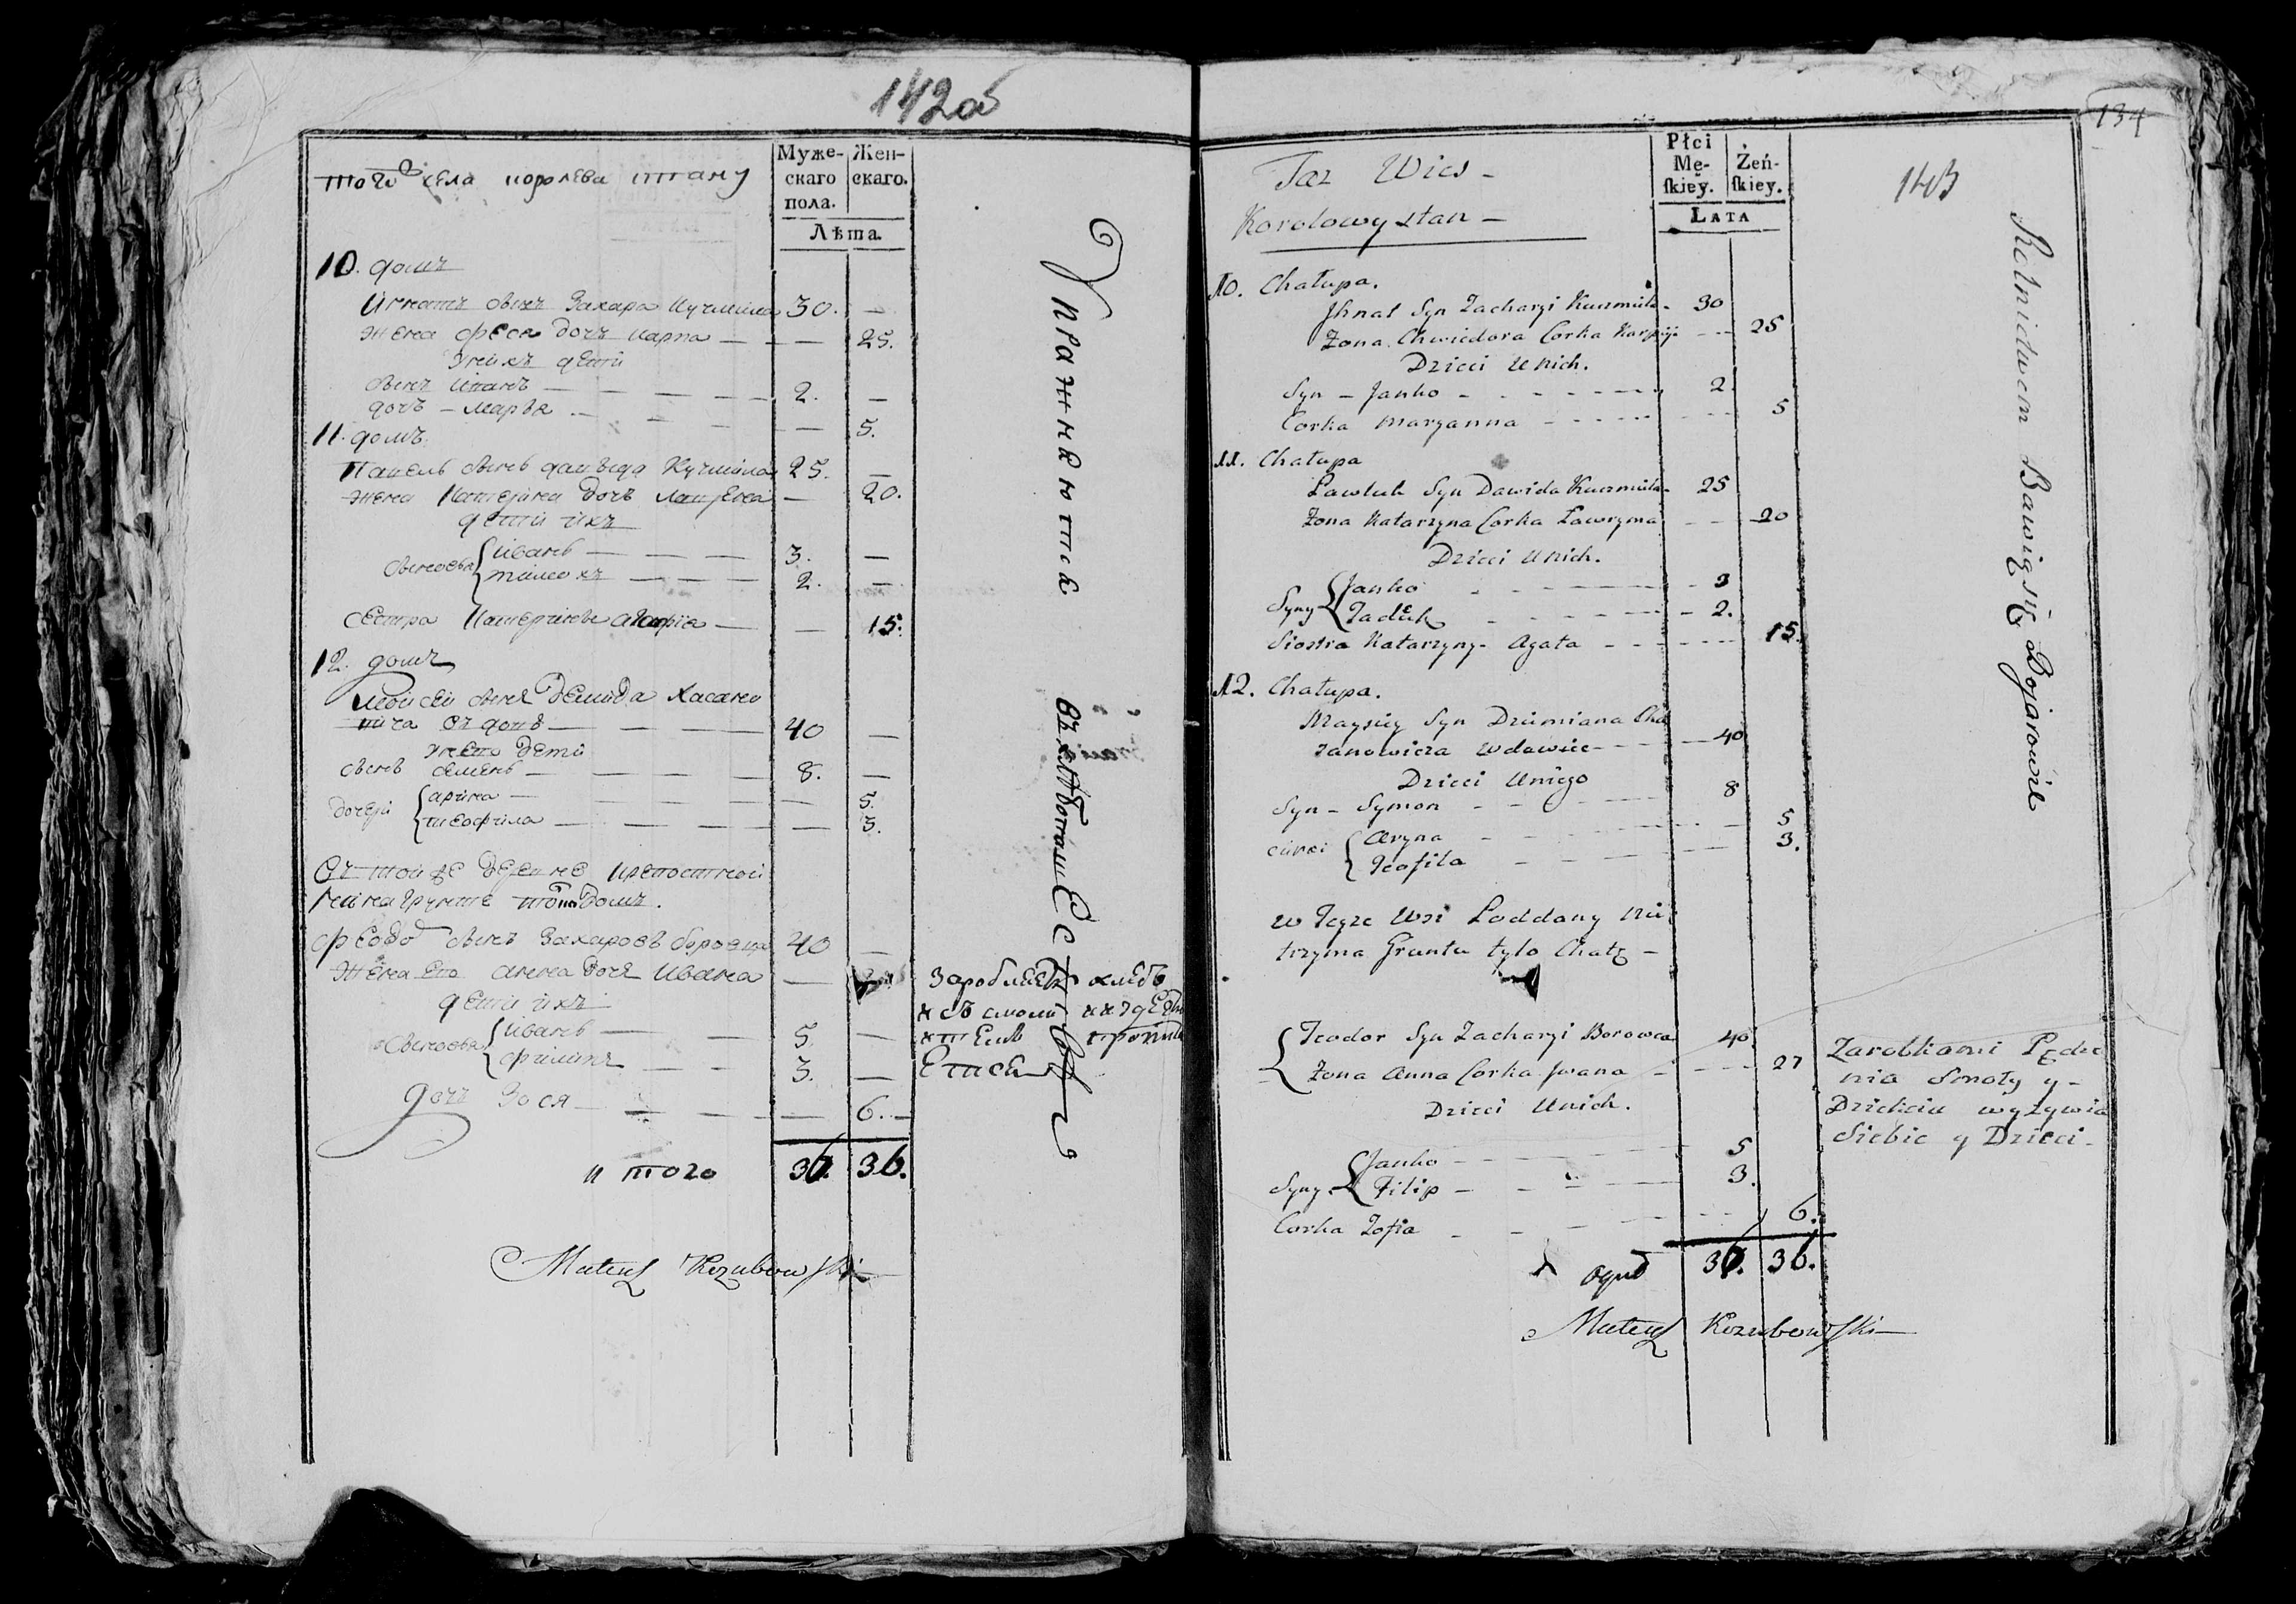 142об
того села королева стану
Муже-
скаго
пола.
Жен-
скаго.
Лѣта.
10. домъ
Игнатъ сынъ Захара Кучмила 30. —
жена Феся дочъ Карпа — — 25.
у нихъ дети
сынъ Иванъ — 2. —
дочъ – Маръя — — 5.
11. домъ
Павелъ сынъ давыда Кучмила 25. —
жена Катерина дочъ — 20.
дети ихъ
сыновья { Иванъ — 3. —
Тимохъ — 2. —
Сестра Катерины Агафiа — — 15.
12. домъ
Мойсей сынъ Демида Хасано
вича вдовъ — 40 —
у него дети
сынъ Семенъ — 8. —
дочери { арина — — 5.
теофила — — 3.
Въ той же деревне крепостной
неима грунта домъ.
Феодо сынъ Захаровъ боровца 40 —
Жена его анна дочъ Ивана —
дети ихъ
сыновья { Иванъ — 5. —
филипъ — 3. —
дочъ Зося — — 6. —
итого 36. 36.
Mateusz Kozubowski
Упражняются въ хлебопашестве
Заробляетъ хлебъ
Taz Wies –
Korolowy stan –
Płci
Mę-
ſkiey.
Żeń-
ſkiey.
LATA
134
143
10. Chałupa.
Jhnat Syn Zacharyi Kuczmiła – 30
Zona Chwiedora Corka Karpiji – 25
Dzieci U nich.
Syn – Janko – 2
Corka Maryanna – 5
11. Chałupa
Pawluk Syn Dawida Kuczmiła – 25
Zona Katarzyna Corka Ławryma – 20
Dzieci U nich.
Syny { Janko – 3
– 2.
Siostra Katarzyny – Agata – 15.
12. Chałupa.
Mayziey Syn Dziemiana Cha
zanowicza Wdowiec – 40
Dzieci U niego
Syn – Symon – 8
curki { Aryna – 5
Teofila – 3.
w Teyze Wsi Poddany nie
trzyma Gruntu tylo Chatę –
{ Teodor Syn Zacharyi Borowca 40.
Zona Anna Corka Jwana – 27
Dzieci U nich.
Syny { Janko – 5
Filip – 3.
Corka Zofia – 6.
Ogul 36. 36.
Mateusz Kozubowski
Rolnictwem Bawią się
Zarobkami Pędze
nia Smoły y –
Dziekciu wyżywia
Siebie y Dzieci –